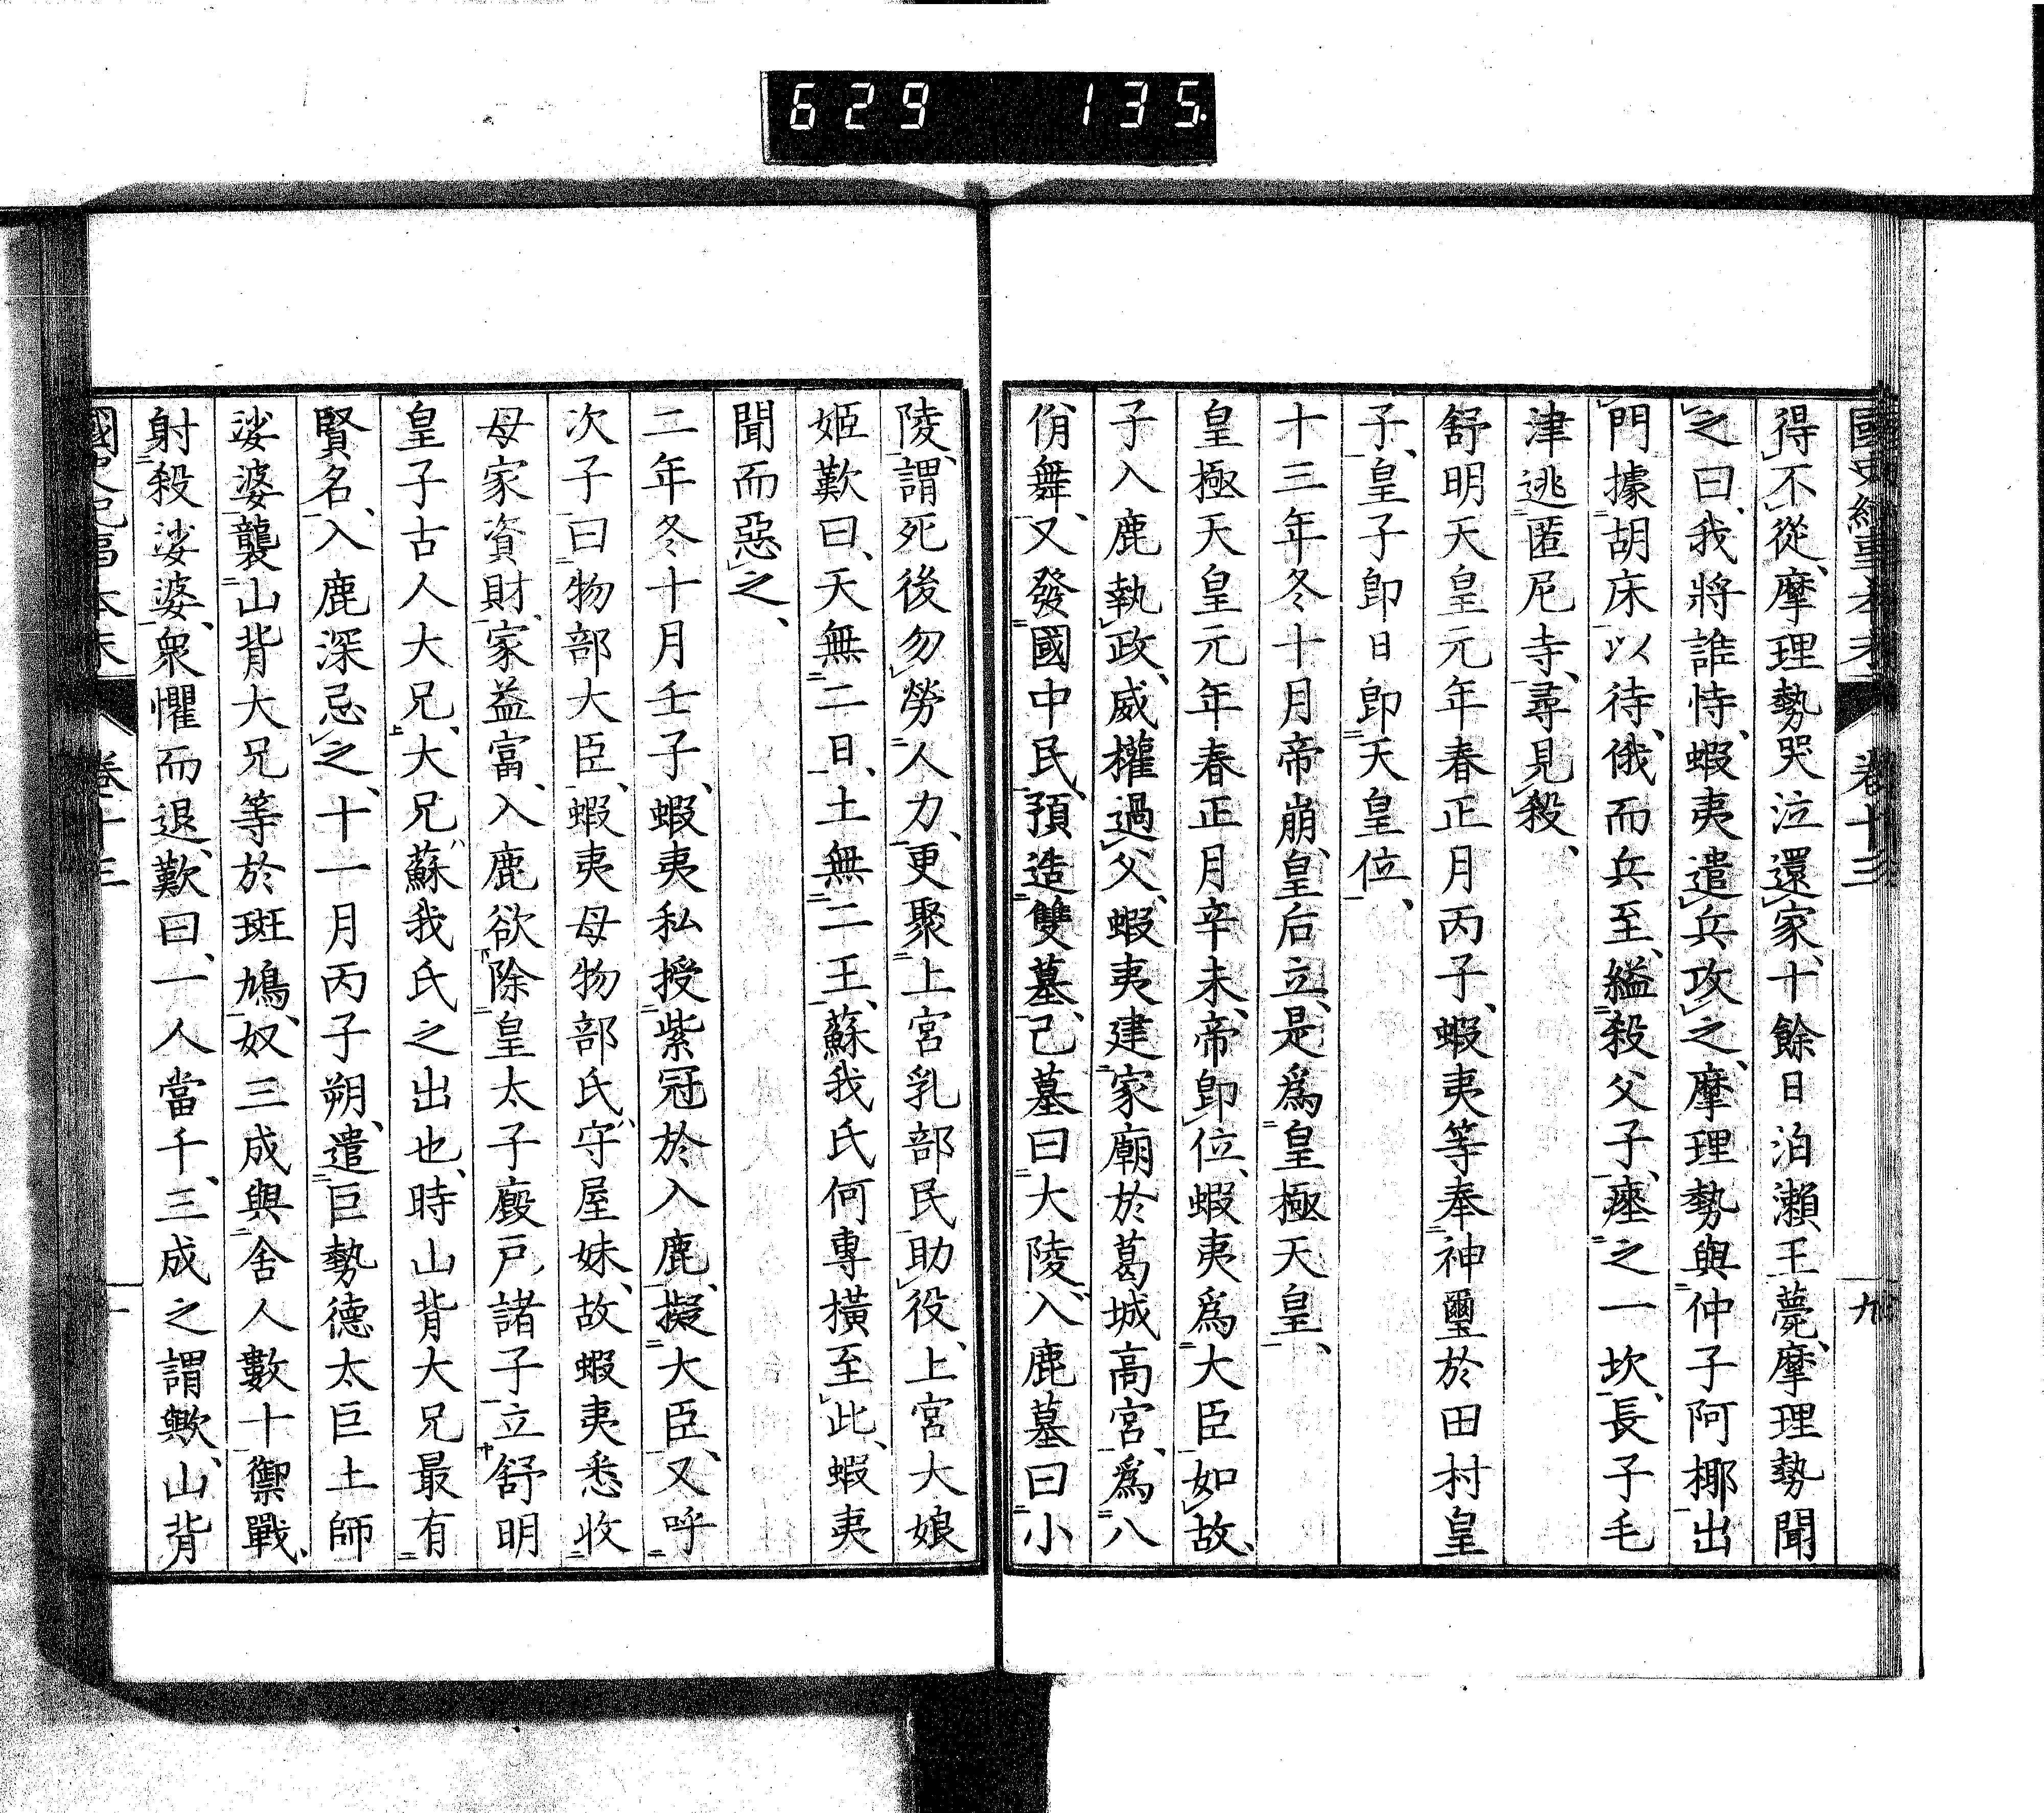 629 135.
得不從、摩理勢哭泣還家、十餘日泊瀨王薨、摩理勢聞
之曰、我將誰恃、蝦夷遣兵攻之、摩理勢與仲子阿椰出
門據胡床以待、俄而兵至、縊殺父子、瘞之一坎、長子毛
津逃匿尼寺、尋見殺、
舒明天皇元年春正月丙子、蝦夷等奉神璽於田村皇
子、皇子卽日卽天皇位、
十三年冬十月帝崩、皇后立、是爲皇極天皇、
皇極天皇元年春正月辛未、帝卽位、蝦夷爲大臣如故、
子入鹿執政、威權過父、蝦夷建家廟於葛城高宮、爲八
佾舞、又發國中民、預造雙墓、己墓曰大陵、入鹿墓曰小
陵、謂死後勿勞人力、更聚上宮乳部民助役、上宮大娘
姬歎曰、天無二日、土無二王、蘇我氏何專橫至此、蝦夷
聞而惡之、
二年冬十月壬子、蝦夷私授紫冠於入鹿、擬大臣、又呼
次子曰物部大臣、蝦夷母物部氏、守屋妹、故蝦夷悉收
母家資財、家益富、入鹿欲除皇太子廐戶諸子立舒明
皇子古人大兄、大兄蘇我氏之出也、時山背大兄最有
賢名、入鹿深忌之、十一月丙子朔、遣巨勢德太巨土師
娑婆襲山背大兄等於斑鳩、奴三成與舍人數十禦戰、
射殺娑婆、衆懼而退、歎曰、一人當千、三成之謂歟、山背
卷十三